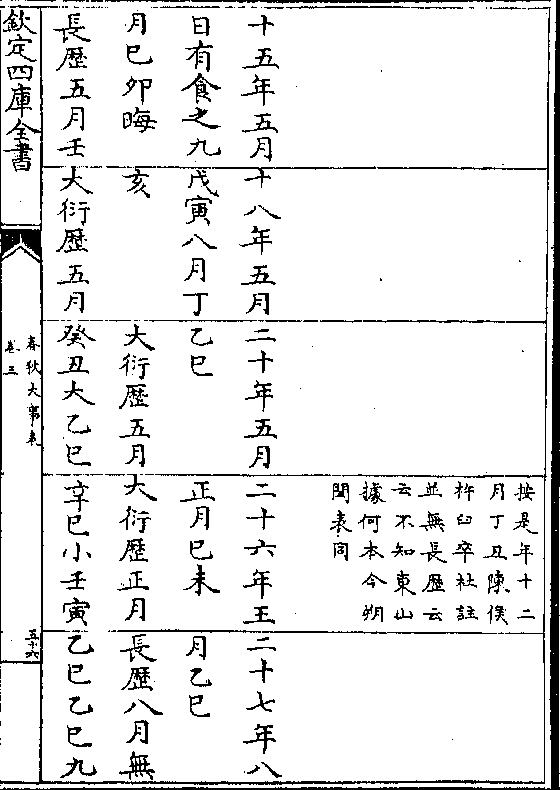 十五年五月
日有食之九
月巳卯晦
長歴五月壬
十八年五月
戊寅八月丁
亥
大衍歴五月
二十年五月
乙巳
大衍歴五月
癸丑大乙巳
按是年十二
月丁丑陳侯
杵臼卒社註
並無長歴云
云不知東山
據何本今朔
閏表同
二十六年王
正月巳未
大衍歴正月
辛巳小壬寅
二十七年八
月乙巳
長歴八月無
乙巳乙巳九
欽定四庫全書
春秋大事表
卷三
五十六